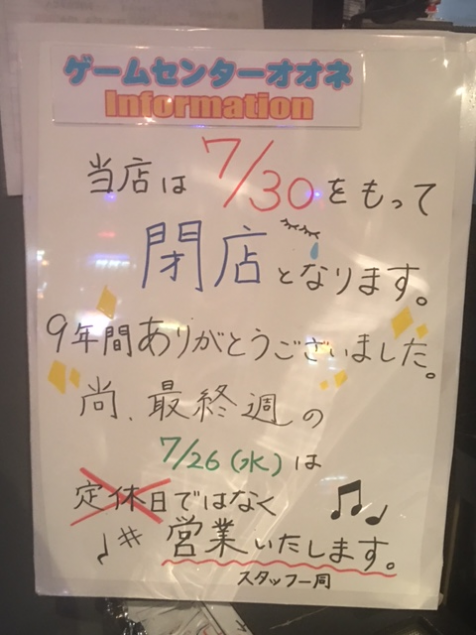 ゲームセンターオオネ
Information
当店は7/30をもって
閉店となります。
9年間ありがとうございました。
尚、最終週の
7/26(水)は
定休日ではなく
営業いたします。
スタッフ一同